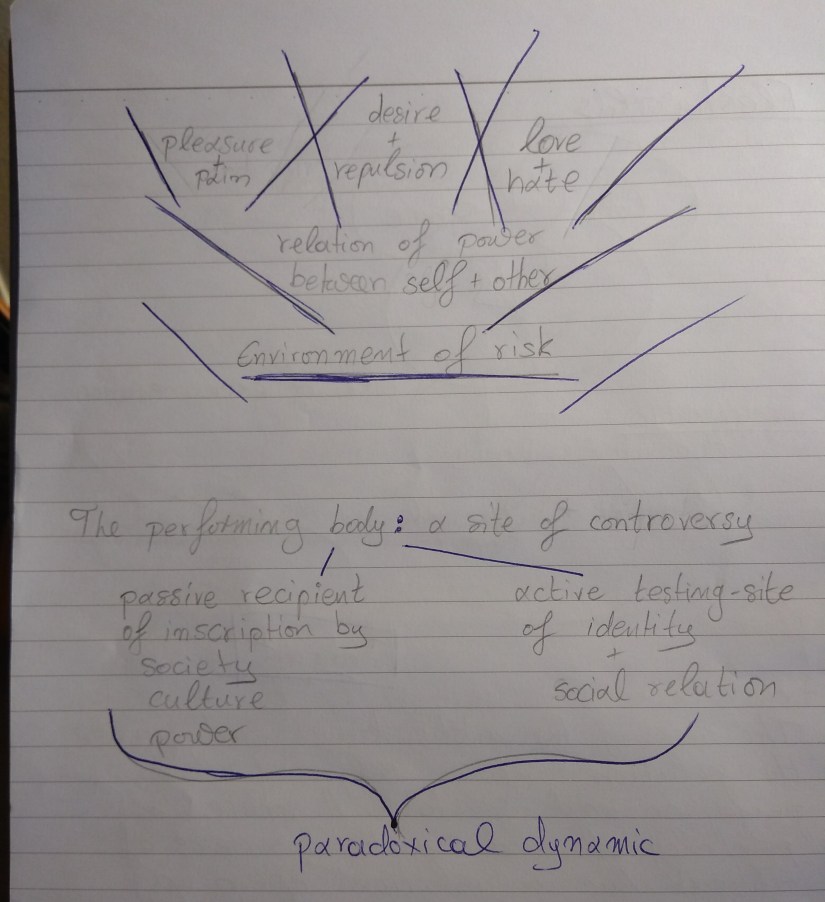 pleasure
+
pain
desire
+
repulsion
love
+
hate
relation of power
between self + other
Environment of risk
The performing body: a site of controversy
passive recipient
of inscription by
society
culture
power
active testing-site
of identity
+
social relation
paradoxical dynamic